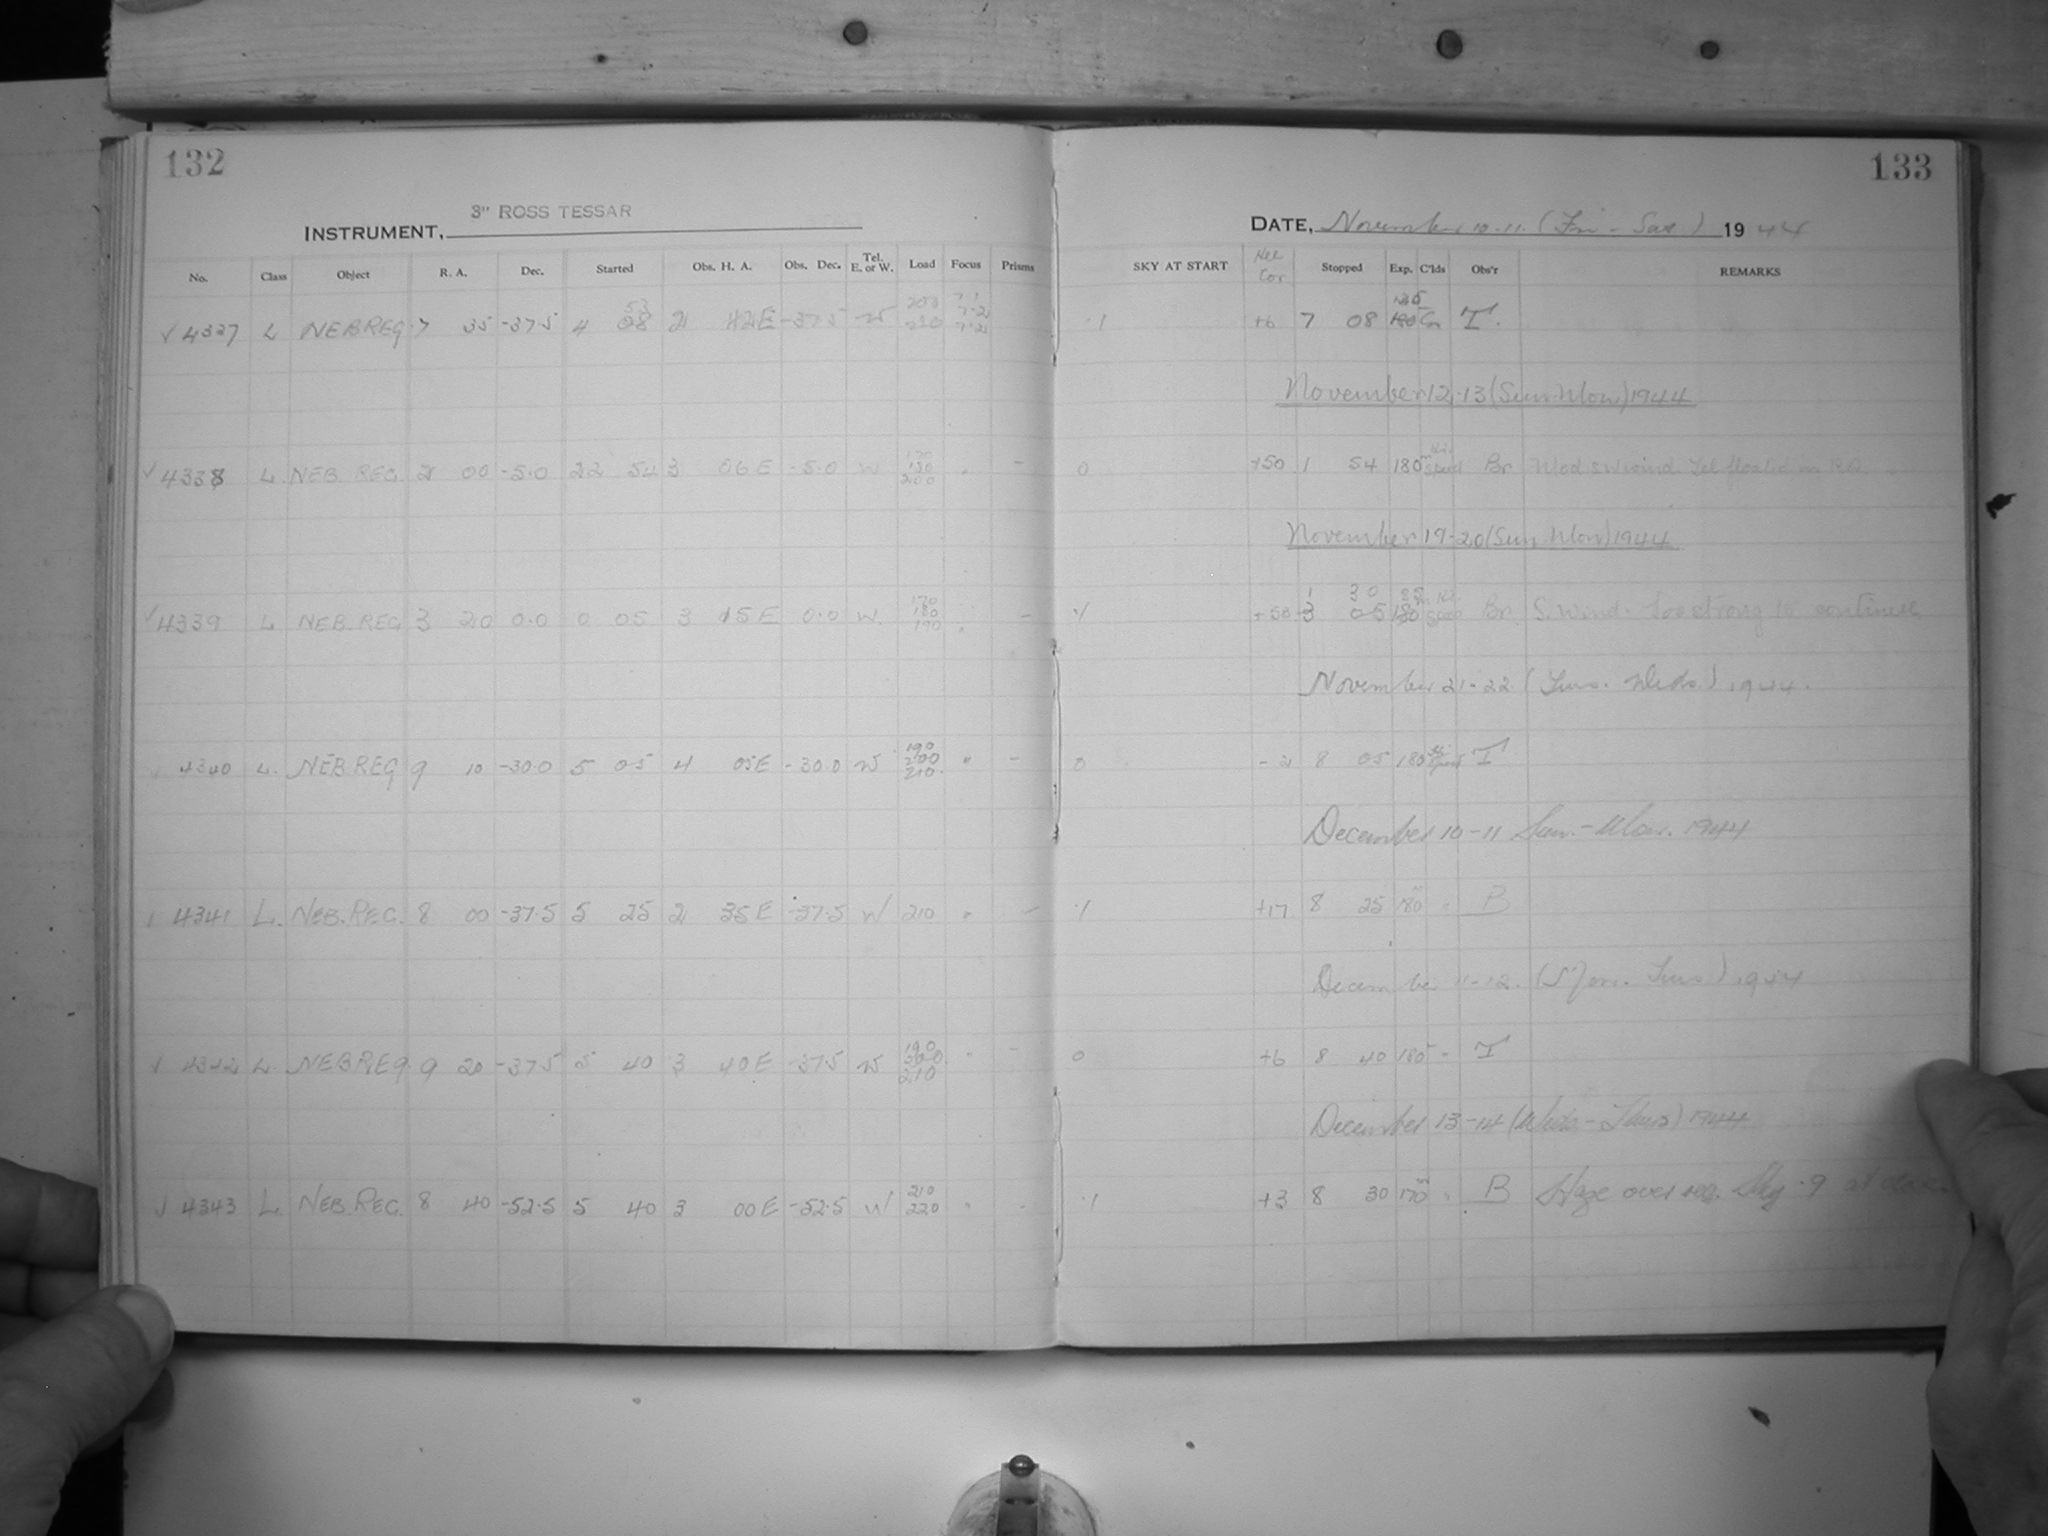 132
133
3" ROSS TESSAR
INSTRUMENT,
DATE, November 10-11. (Fri - Sat) 1944
No. Class Object R. A. Dec. Started Obs. H. A. Obs. Dec. Tel. E. or W. Load Focus Prisms SKY AT START Stopped Exp. C'lds Obs'r REMARKS
4337 L NEB REG 7 35 -37.5 4 53 2 42E -37.5 W 210 7.2 .1 +6 7 08 135 T.
November 12-13 (Sun-Mon) 1944
4338 L. NEB. REG. 2 00 -5.0 22 54 3 06 E -5.0 W 200 " - 0 +50 1 54 180 Br Mod SW wind Tel floated in RA
November 19-20 (Sun Mon) 1944
4339 L NEB. REG 3 20 0.0 0 05 3 15 E 0.0 W. 170 180 190 " - .1 +50 1 30 85 Br. S. wind too strong to continue
November 21-22 (Tues. Weds.) 1944.
4340 L. NEB REG 9 10 -30.0 5 05 4 05 E -30.0 W 190 200 210 " - 0 -2 8 05 180 T
December 10-11 Sun.-Mon. 1944
4341 L. NEB. REG. 8 00 -37.5 5 25 2 35 E -37.5 W 210 " - .1 +17 8 25 180 " B
December 11-12. (Mon. Tues) 1944
4342 L. NEB REG. 9 20 -37.5 5 40 3 40 E -37.5 W 190 200 210 " - 0 +6 8 40 180 " T
December 13-14 (Weds - Thurs) 1944
4343 L. NEB. REG. 8 40 -52.5 5 40 3 00 E -52.5 W 210 220 " - .1 +3 8 30 170 " B Haze over reg. Sky .9 at close.